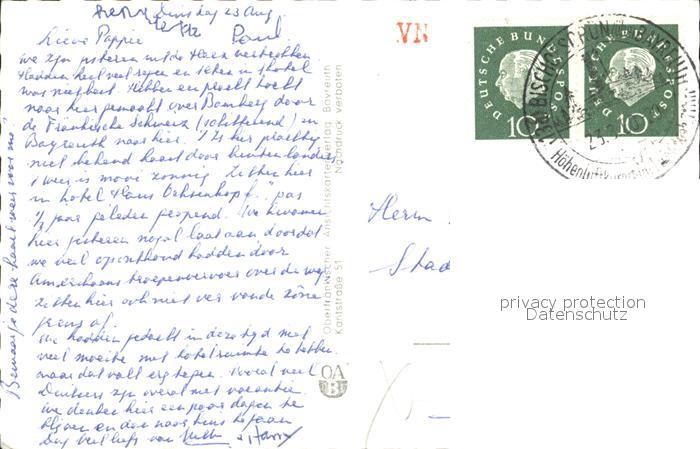 Dinsdag 23 Aug
Lieve Pappie Paul.
we zijn gisteren uit de Haar vertrokken
Hadden heel veel regen en zaten in 't hotel
was niet best. Hebben een pracht tocht
naar hier gemaakt over Bamberg door
de Fränkische Schweiz (schitterend) en
Bayreuth naar hier. 't Is hier prachtig
niet bekend haast door buitenlanders
't weer is mooi zonnig zitten hier
in hotel "Haus Ochsenkopf" pas
½ jaar geleden geopend. We kwamen
hier gisteren nogal laat aan doordat
we veel oponthoud hadden door
Amerikaans troepenvervoer over de weg
zitten hier ook niet ver van de zône
grens af.
We hadden gedacht in deze tijd met
veel moeite met hotelruimte te hebben
maar dat valt erg tegen. Vooral veel
Duitsers zijn overal met vacantie.
We denken hier een paar dagen te
blijven en dan naar huis te gaan
Dag veel liefs van
Harry
Bewaar je deze kaart weer voor me?
Oberfränkischer Ansichtskartenverlag Bayreuth
Kantstraße 51 Nachdruck verboten
OA
B
VN
DEUTSCHE BUNDESPOST
10
DEUTSCHE BUNDESPOST
10
BISCHOFSGRÜN
23.
Höhenluftkurort
Herrn
Stad
privacy protection
Datenschutz